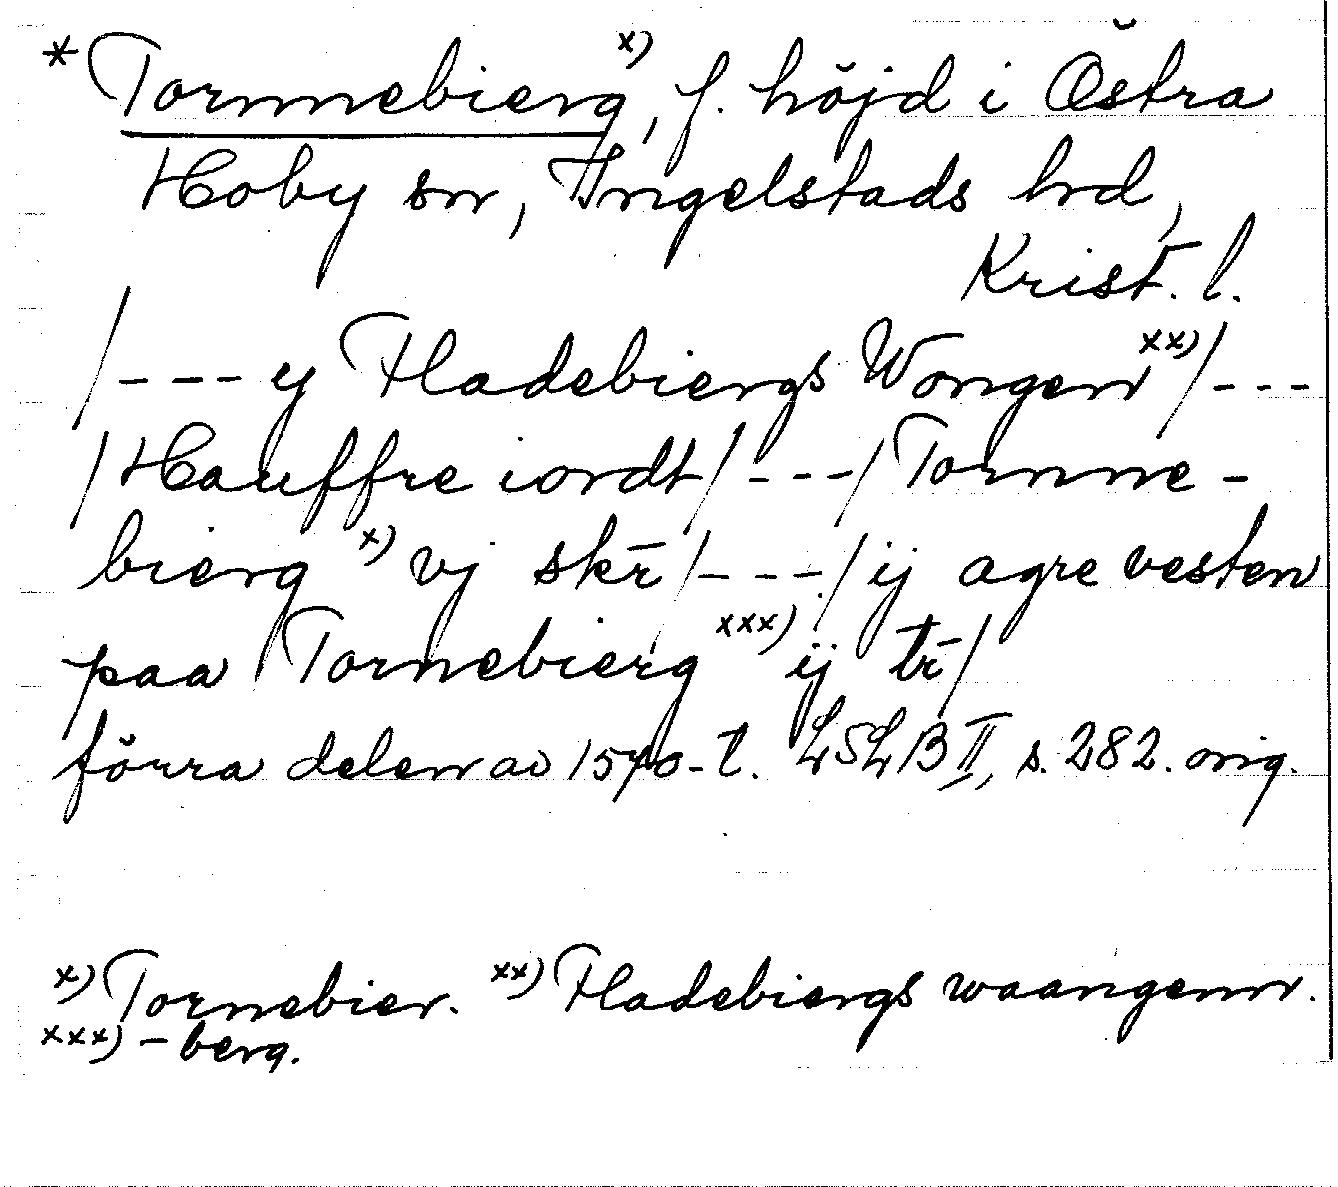 * Tornnebierg x), f. höjd i Östra
Hoby sn, Ingelstads hd,
Krist. l.
/--- y Fladebiergs Wongen xx)/---
/Hauffre iordt/---/Tornne-
bierg x) vj skr̄/---/ij agre vesten
paa Tornebierg xxx) ij tr̄/
förra delen av 1570-t. LSLB II, s. 282. orig.
x) Tornebier. xx) Fladebiergs waangenn.
xxx) -berg.